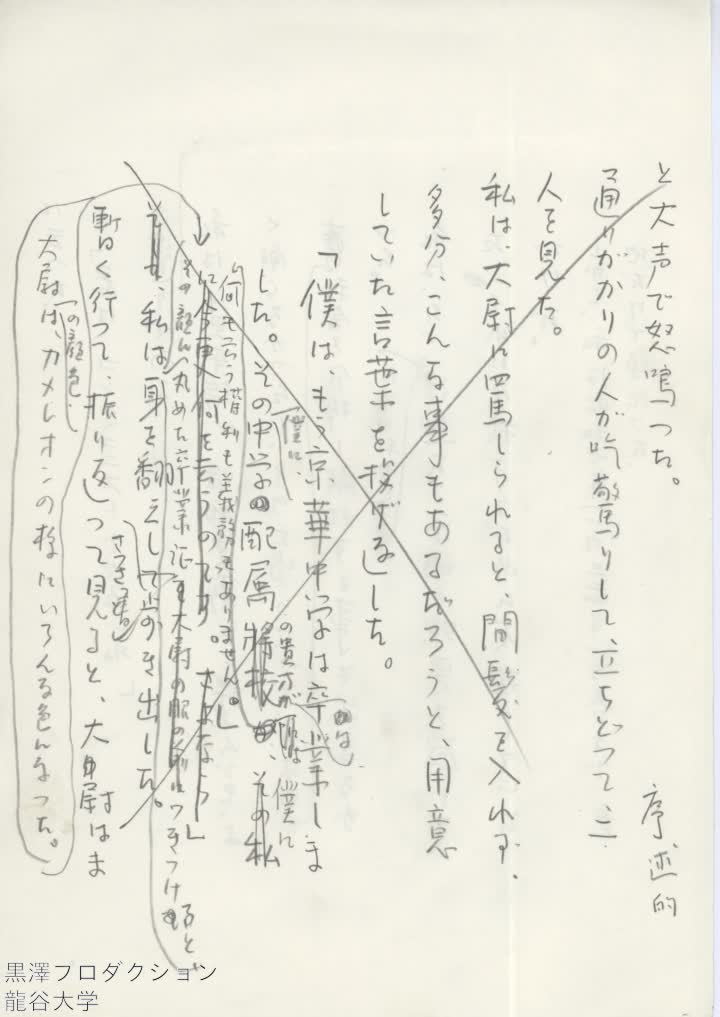 序述的
と大声で怒鳴った。
通りがかりの人が吃驚りして、立ちどって、二
人を見た。
私は、大尉に罵しられると、間髪を入れず、
多分、こんな事もあるだろうと、用意
していた言葉を投げ返した。
「僕は、もう京華中学は卒業しま
した。その中学の配属将校の、その私
僅に
の貴方は
僕に
何も言う権利も義務もありません。」
に今更何を言うのです。さよなら」
その顔へ丸めた卒業証を大尉の服の
つきつけると
そして、私は身を翻えして歩き出した。
さっさっと
暫く行って、振り返って見ると、大尉はま
の顔色
大尉は、カメレオンの様にいろんな色になった。
黒澤プロダクション
龍谷大学